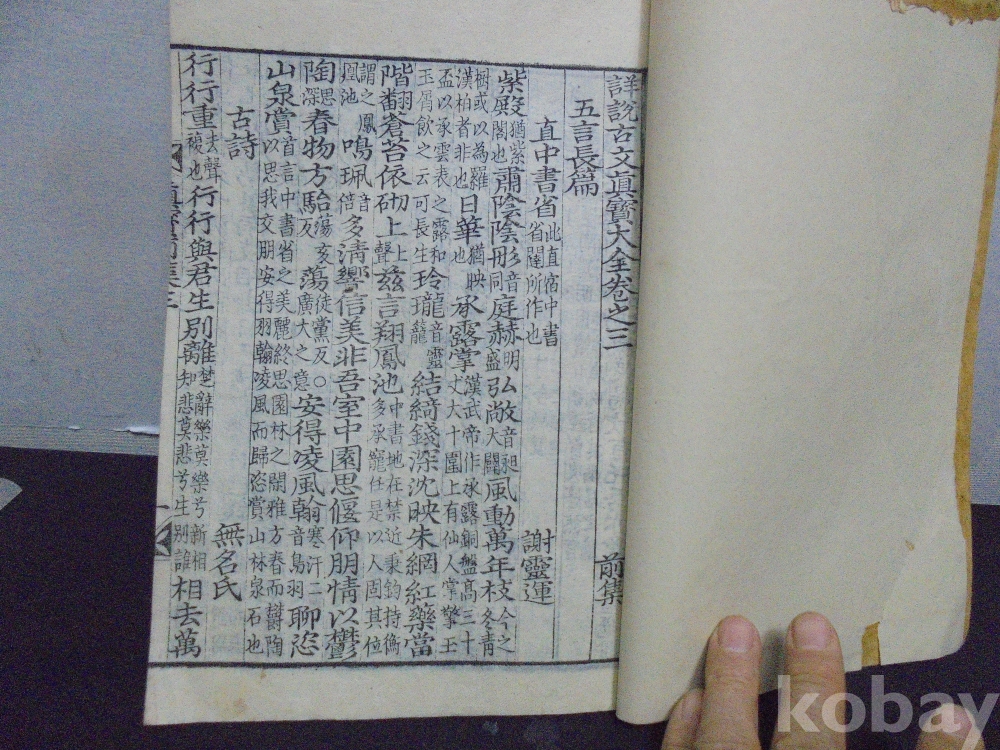 詳說古文眞寶大全卷之三 前集
五言長篇
直中書省 此直宿中書省闥所作也 謝靈運
紫殿 猶紫閤也 肅陰陰彤 音同 庭赫 明盛 弘敞 音昶大闢 風動萬年枝 今之冬靑
樹或以為羅漢柏者非也 日華 猶映也 承露掌 漢武帝作承露銅盤高三十丈大十圍上有仙人掌擎玉
盃以承雲表之露和玉屑飮之云可長生 玲瓏 音靈籠 結綺錢深沈映朱網紅藥當
階翻蒼苔依砌上 上聲 茲言翔鳳池 中書地在禁近秉鈞持衡多承寵任是以人固其位
謂之鳳凰池 鳴珮 音倍 多淸響信美非吾室中園思偃仰朋情以鬱
陶 思深 春物方駘 蕩亥反 蕩 徒黨反○廣大之意 安得凌風翰 寒汗二音鳥羽 聊恣
山泉賞 首言中書省之美麗終思園林之閑雅方春而鬱陶以思我交朋安得羽翰陵風而歸恣賞山林泉石也
古詩 無名氏
行行重 去聲複也 行行與君生別離 楚辭樂莫樂兮新相知悲莫悲兮生別離 相去萬
kobay